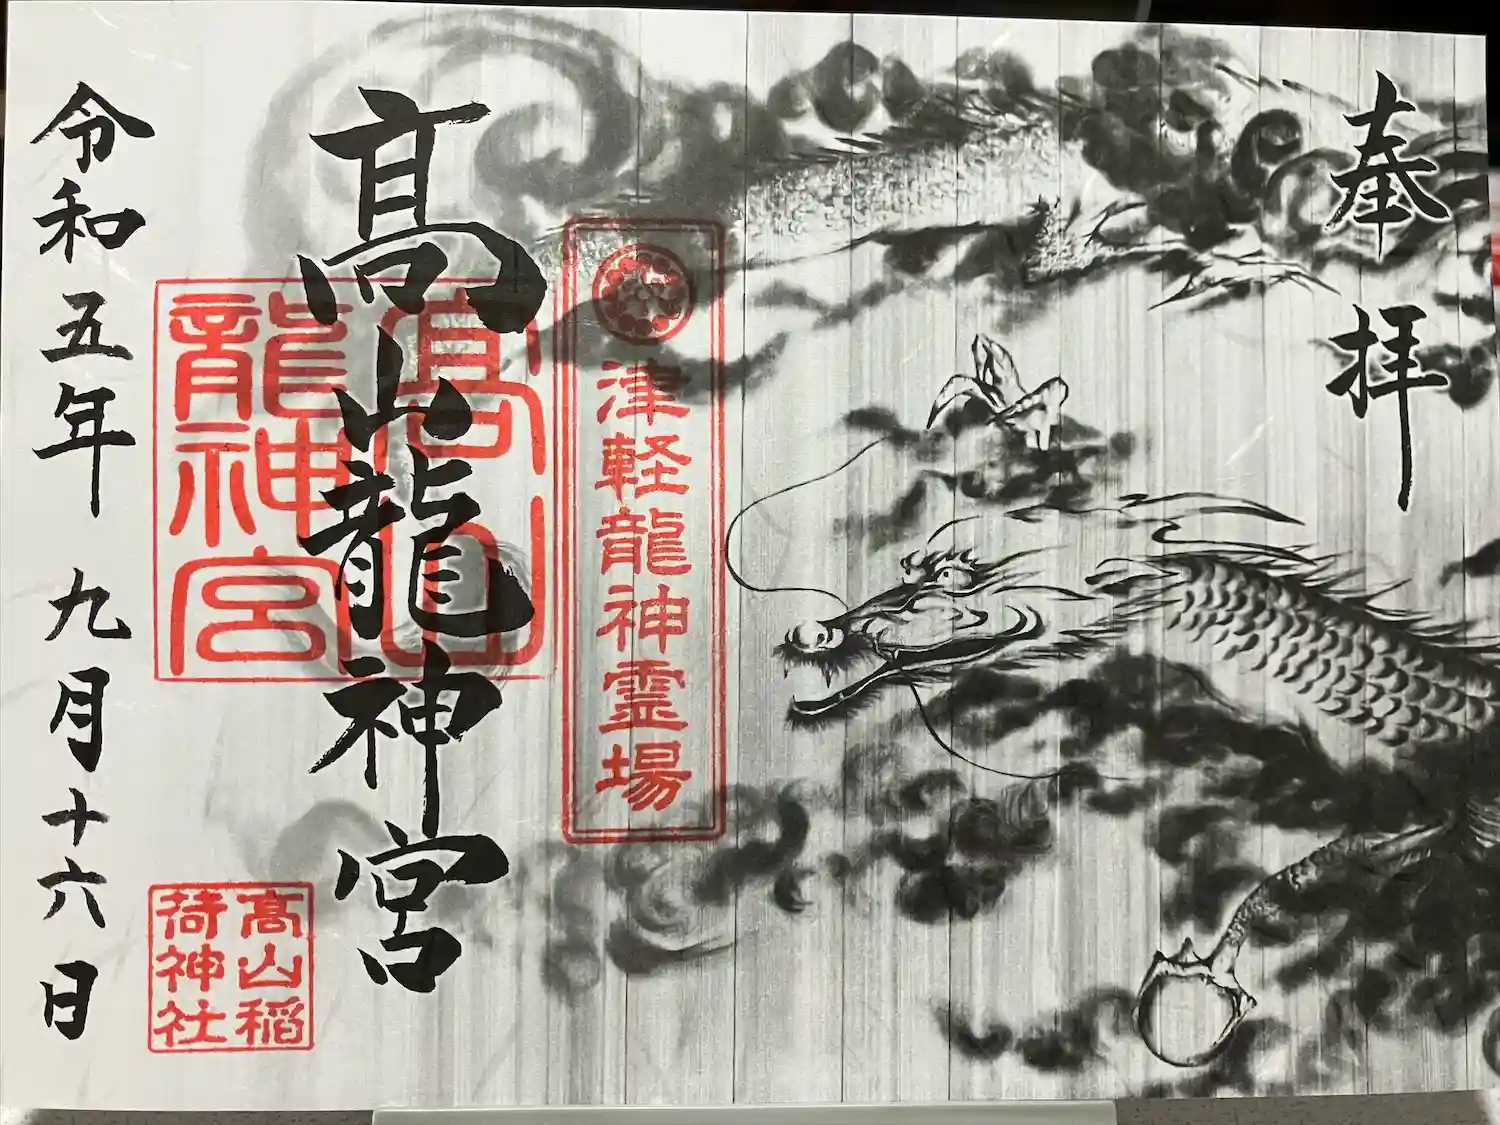 奉拝
津軽龍神霊場
髙山龍神宮
髙山
龍神宮
髙山稲
荷神社
令和五年 九月十六日